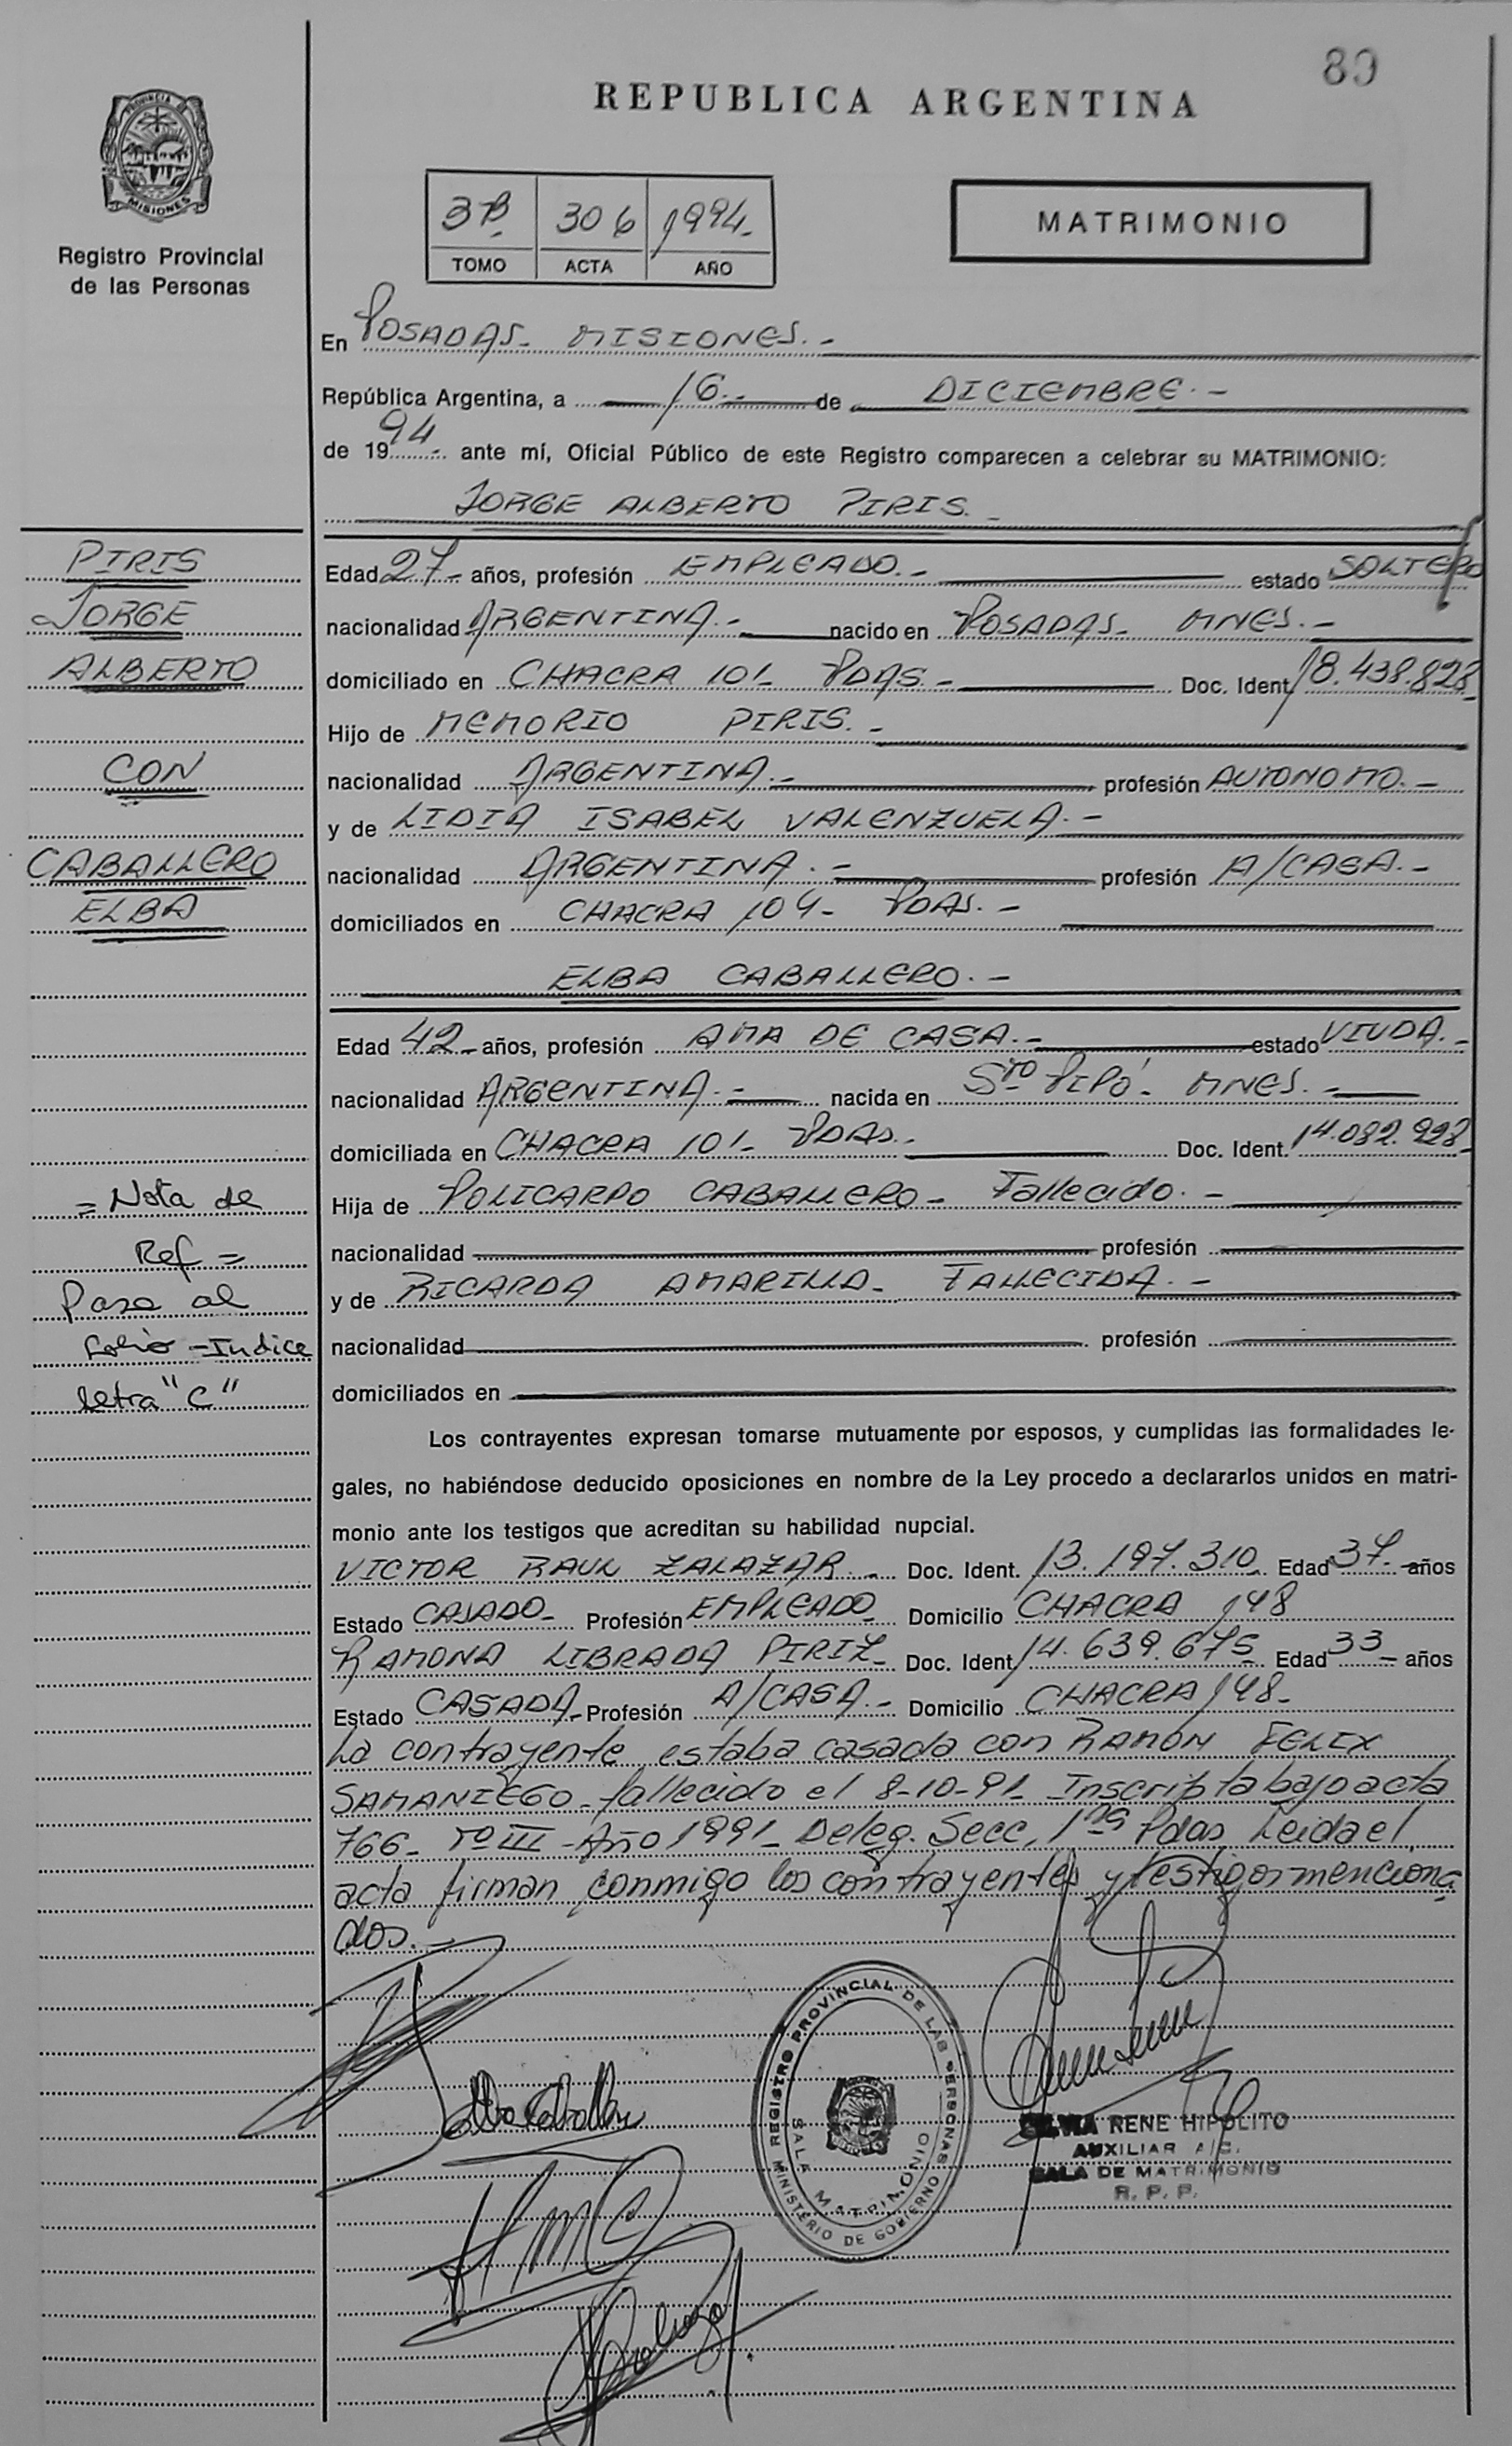 89
REPUBLICA ARGENTINA
PROVINCIA DE
MISIONES
Registro Provincial
de las Personas
3B. 306 1994.-
TOMO ACTA AÑO
MATRIMONIO
En POSADAS- MISIONES.-
República Argentina, a 16.- de DICIEMBRE.-
de 1994.- ante mí, Oficial Público de este Registro comparecen a celebrar su MATRIMONIO:
JORGE ALBERTO PIRIS.-
PIRIS
JORGE
ALBERTO
CON
CABALLERO
ELBA
Edad 27- años, profesión EMPLEADO.- estado SOLTERO
nacionalidad ARGENTINA.- nacido en POSADAS- MNES.-
domiciliado en CHACRA 101- PDAS.- Doc. Ident. 18.438.828-
Hijo de MEMORIO PIRIS.-
nacionalidad ARGENTINA.- profesión AUTONOMO.-
y de LIDIA ISABEL VALENZUELA.-
nacionalidad ARGENTINA.- profesión A/CASA.-
domiciliados en CHACRA 104- PDAS.-
ELBA CABALLERO.-
Edad 42- años, profesión AMA DE CASA.- estado VIUDA.-
nacionalidad ARGENTINA.- nacida en Sto PIPÓ- MNES.-
domiciliada en CHACRA 101- PDAS.- Doc. Ident. 14.082.928
Hija de POLICARPO CABALLERO- Fallecido.-
nacionalidad profesión
y de RICARDA AMARILLA- FALLECIDA.-
nacionalidad profesión
domiciliados en
= Nota de
Ref =
Pasa al
folio - Indice
letra "C"
Los contrayentes expresan tomarse mutuamente por esposos, y cumplidas las formalidades le-
gales, no habiéndose deducido oposiciones en nombre de la Ley procedo a declararlos unidos en matri-
monio ante los testigos que acreditan su habilidad nupcial.
VICTOR RAUL ZALAZAR.- Doc. Ident. 13.197.310. Edad 37- años
Estado CASADO- Profesión EMPLEADO Domicilio CHACRA 148
RAMONA LIBRADA PIRIZ- Doc. Ident. 14.639.675 Edad 33- años
Estado CASADA- Profesión A/CASA.- Domicilio CHACRA 148-
La contrayente estaba casada con RAMÓN FELIX
SAMANIEGO- fallecido el 8-10-91- Inscripta bajo acta
766- Tº III- Año 1991- Deleg. Secc. 1ra Pdas Leida el
acta firman conmigo los contrayentes y testigos menciona
dos.-
REGISTRO PROVINCIAL DE LAS PERSONAS
SALA MATRIMONIO
MINISTERIO DE GOBIERNO
SILVIA RENE HIPOLITO
AUXILIAR A/C.
SALA DE MATRIMONIO
R. P. P.